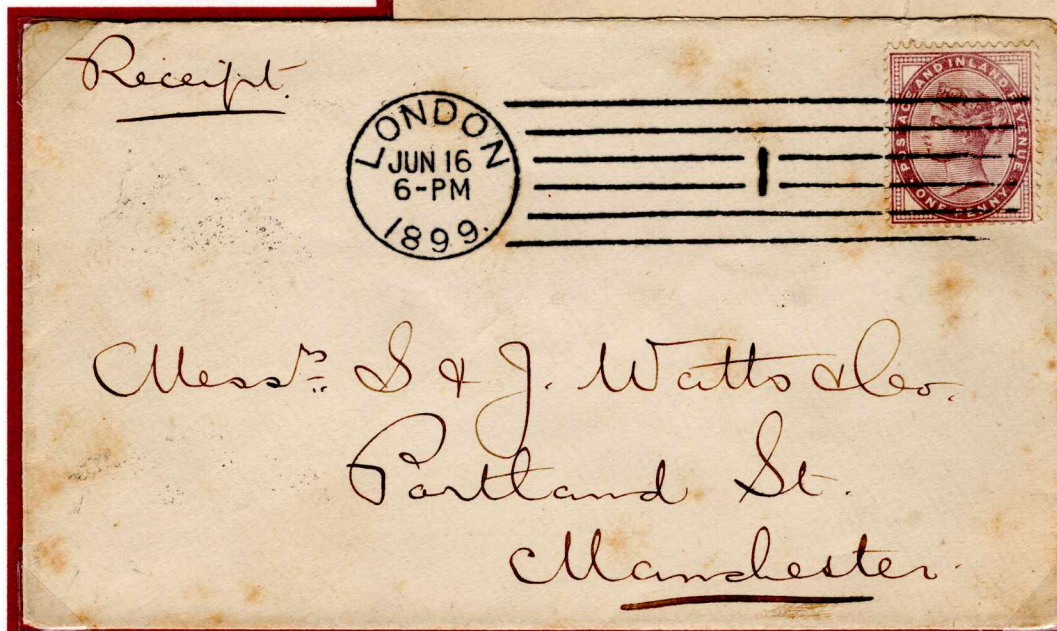 Receipt.
LONDON
JUN 16
6-PM
1899.
1
POSTAGE AND INLAND REVENUE
ONE PENNY
Messrs S & J. Watts & Co.
Portland St.
Manchester.